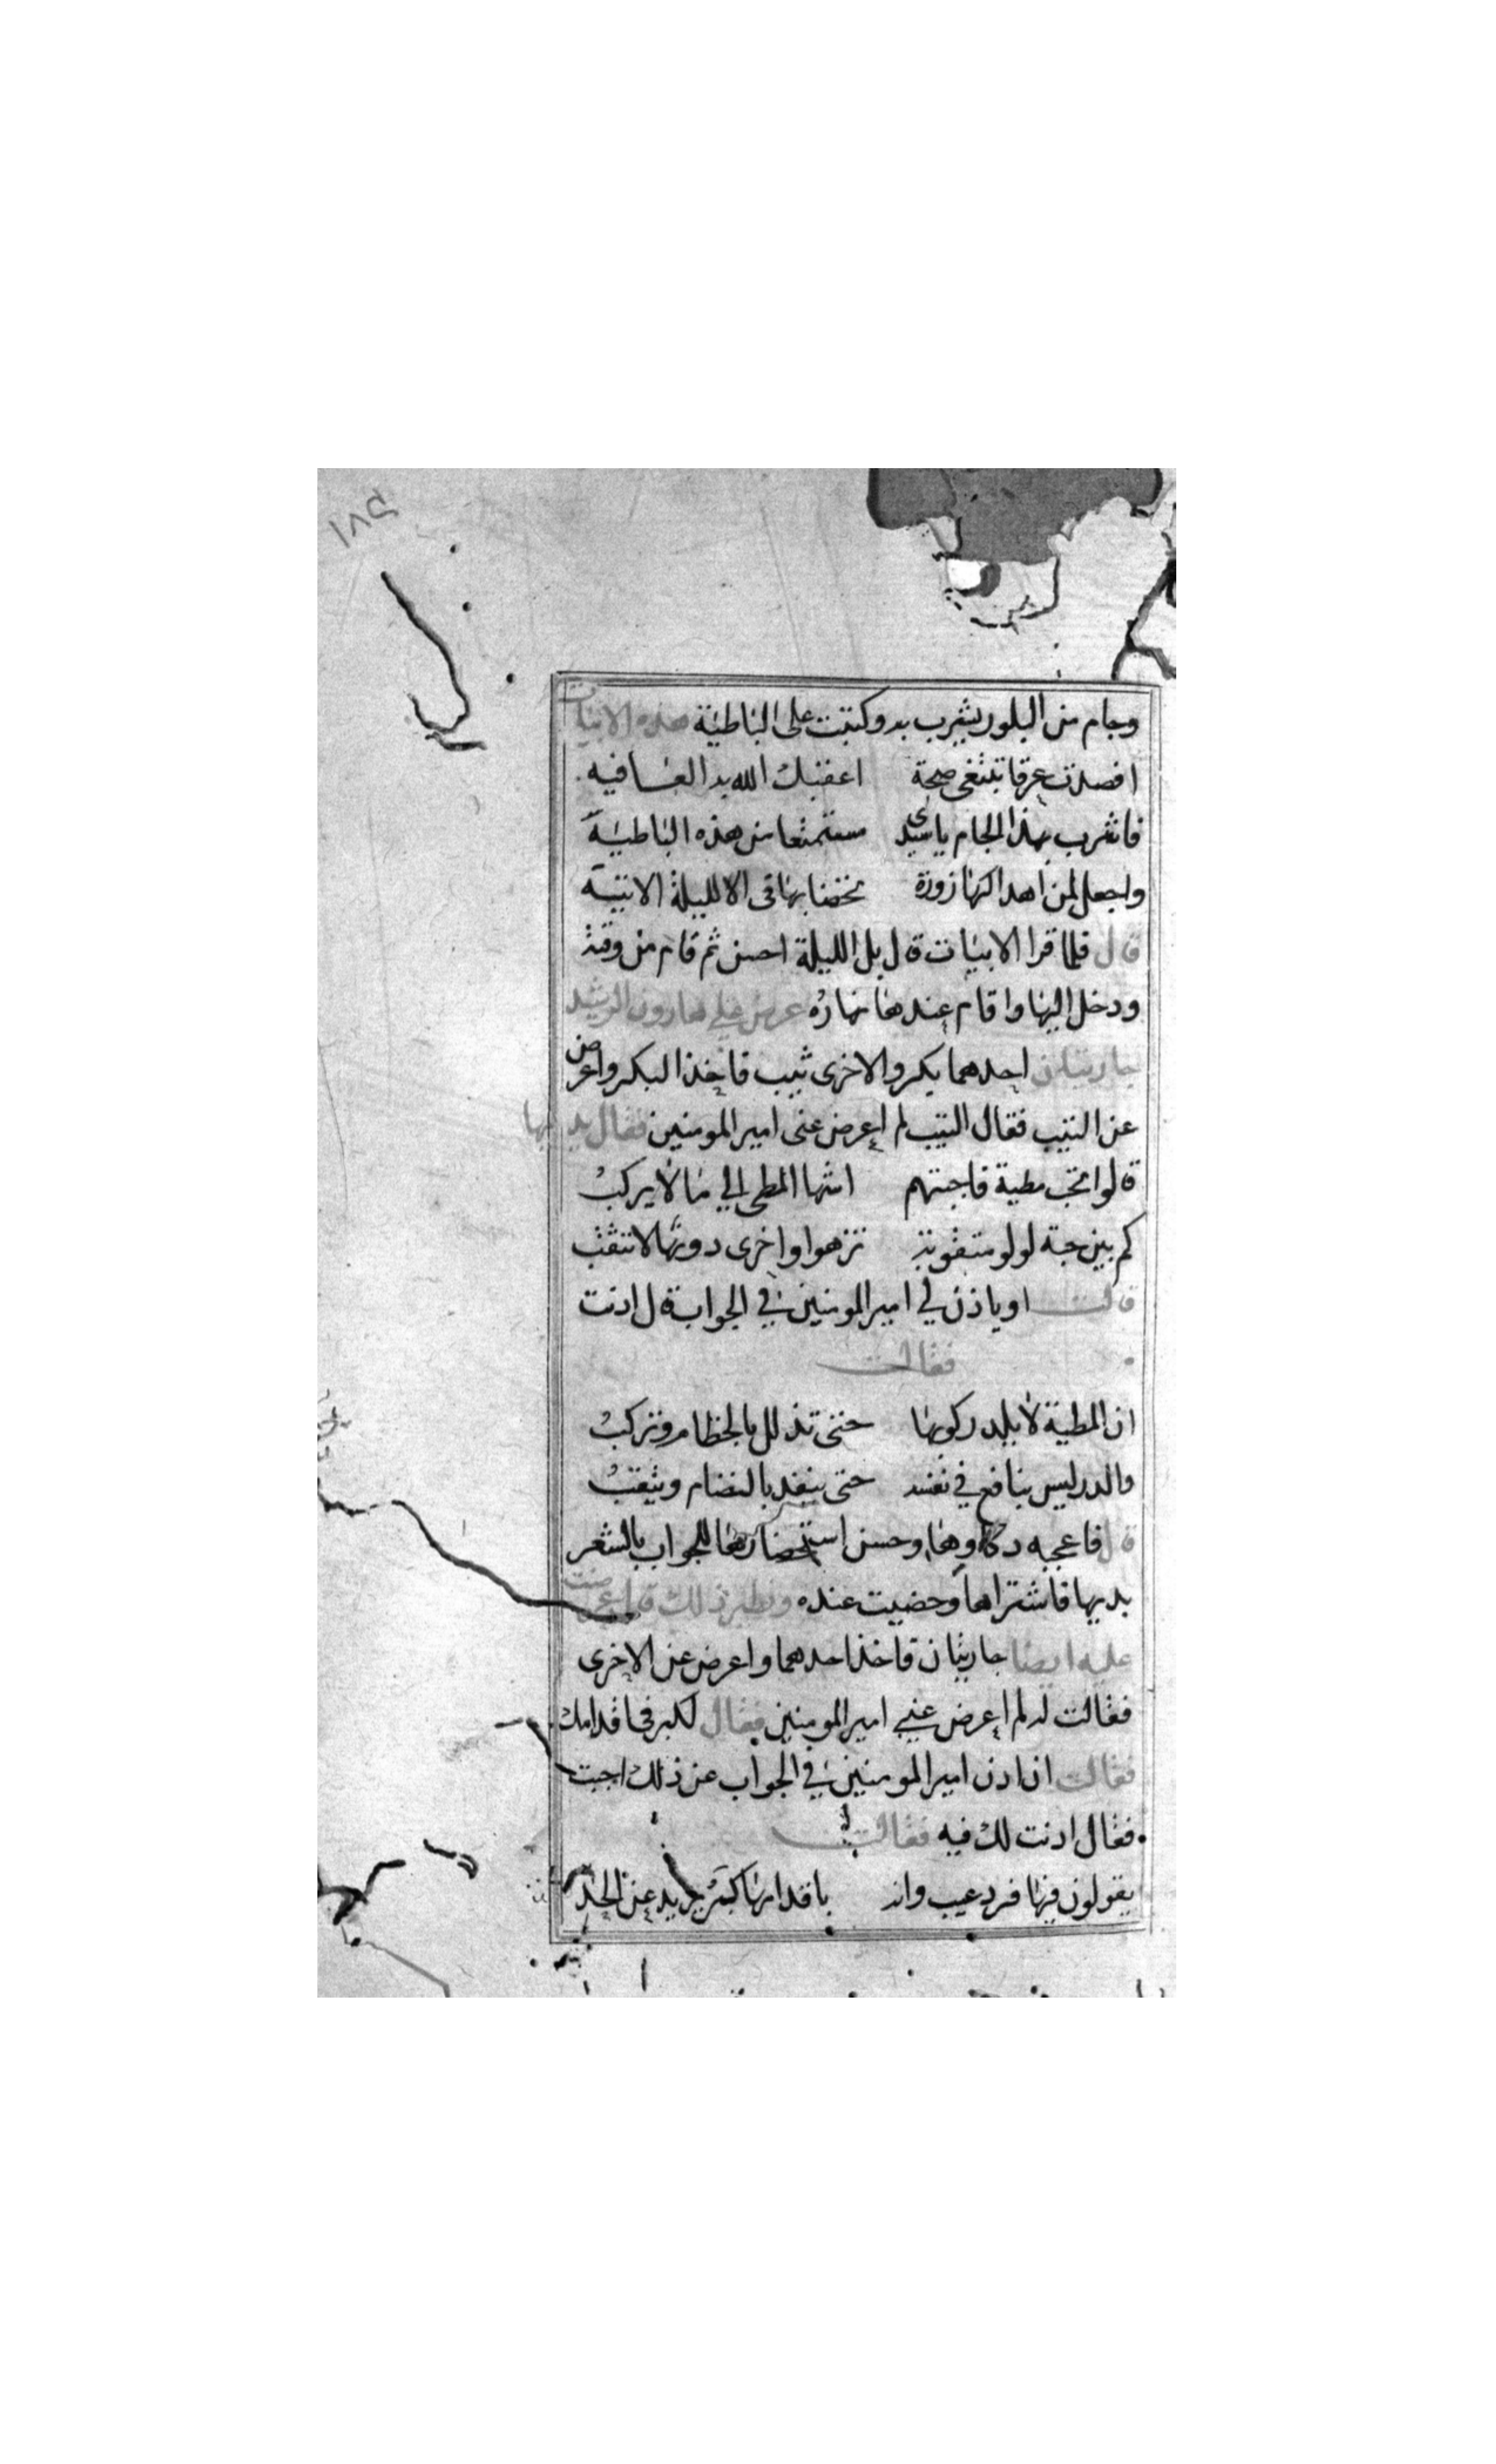 وجام من البلور يشرب به وكتبت على الباطية هذه الابيات
افصدت عرقا تبتغى صحة اعقبك الله به العافيه
فاشرب بهذا الجام يا سيدى مستمتعا من هذه الباطية
واجعل لمن اهداكها زورة تخصنا بها فى الليلة الاتية
قال فلما قرا الابيات قال بل الليلة احسن ثم قام من وقته
ودخل اليها واقام عندها نهاره عرض على هارون الرشيد
جاريتان احدهما بكر والاخرى ثيب فاخذ البكر واعرض
عن الثيب فقال الثيب لم اعرض عنى امير المومنين فقال
قالوا تحب مطية فاجبتهم اشها المطى الي ما لا يركب
كم بين حبة لولو مثقوبة تزهوا واخرى دونها لا تثقب
قالت اوياذن لي امير المومنين في الجواب قال اذنت
فقالت
ان المطية لا يلد ركوبها حتى تذلل بالخطام وتركب
والدر ليس بنافع في نفسه حتى ينفد بالنضام ويثقب
قال فاعجبه دكاوها وحسن استحضارها للجواب بالشعر
بديها فاشتراها وحضيت عنده ونظير ذلك قد اعرضت
عليه ايضا جاريتان فاخذ احدهما واعرض عن الاخرى
فقالت له لم اعرض عني امير المومنين فقال لكبر في اقدامك
فقالت ان اذن امير المومنين في الجواب عن ذلك اجبت
فقال اذنت لك فيه فقالت
يقولون فيها فرد عيب وانه باقدامها كبر يزيد عن الحد